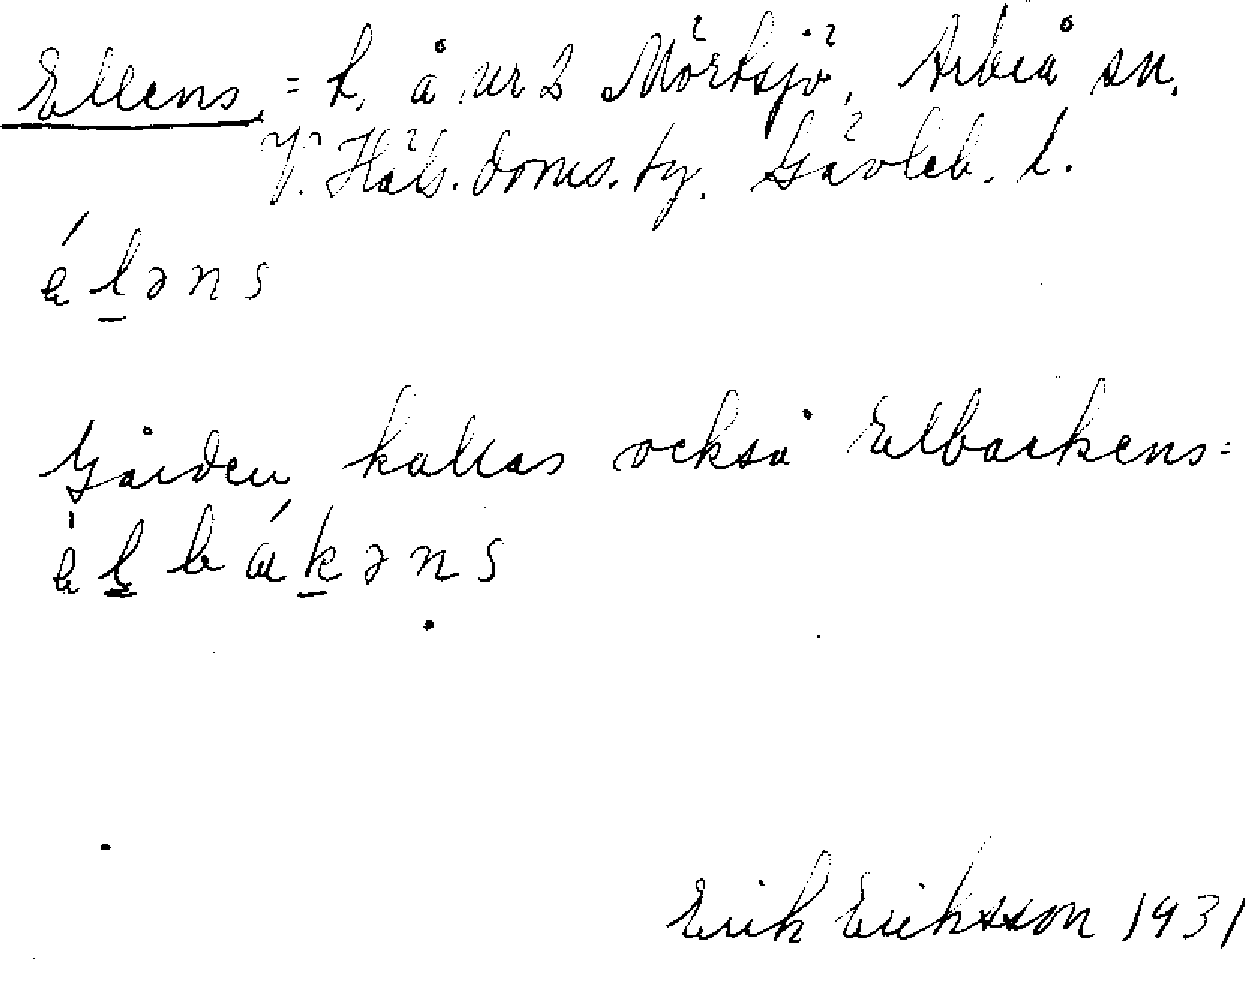 Ellens = h. å nr 2 Mörtsjö, Arbrå sn.
V. Häls. doms. by. Gävleb. l.
é l ə n s
Gården kallas också Elbackens =
è l b á k ə n s
Erik Eriksson 1931